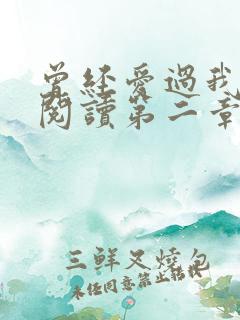 曾經愛過我
閱讀第二章
三鮮叉燒包
未經同意禁止轉載